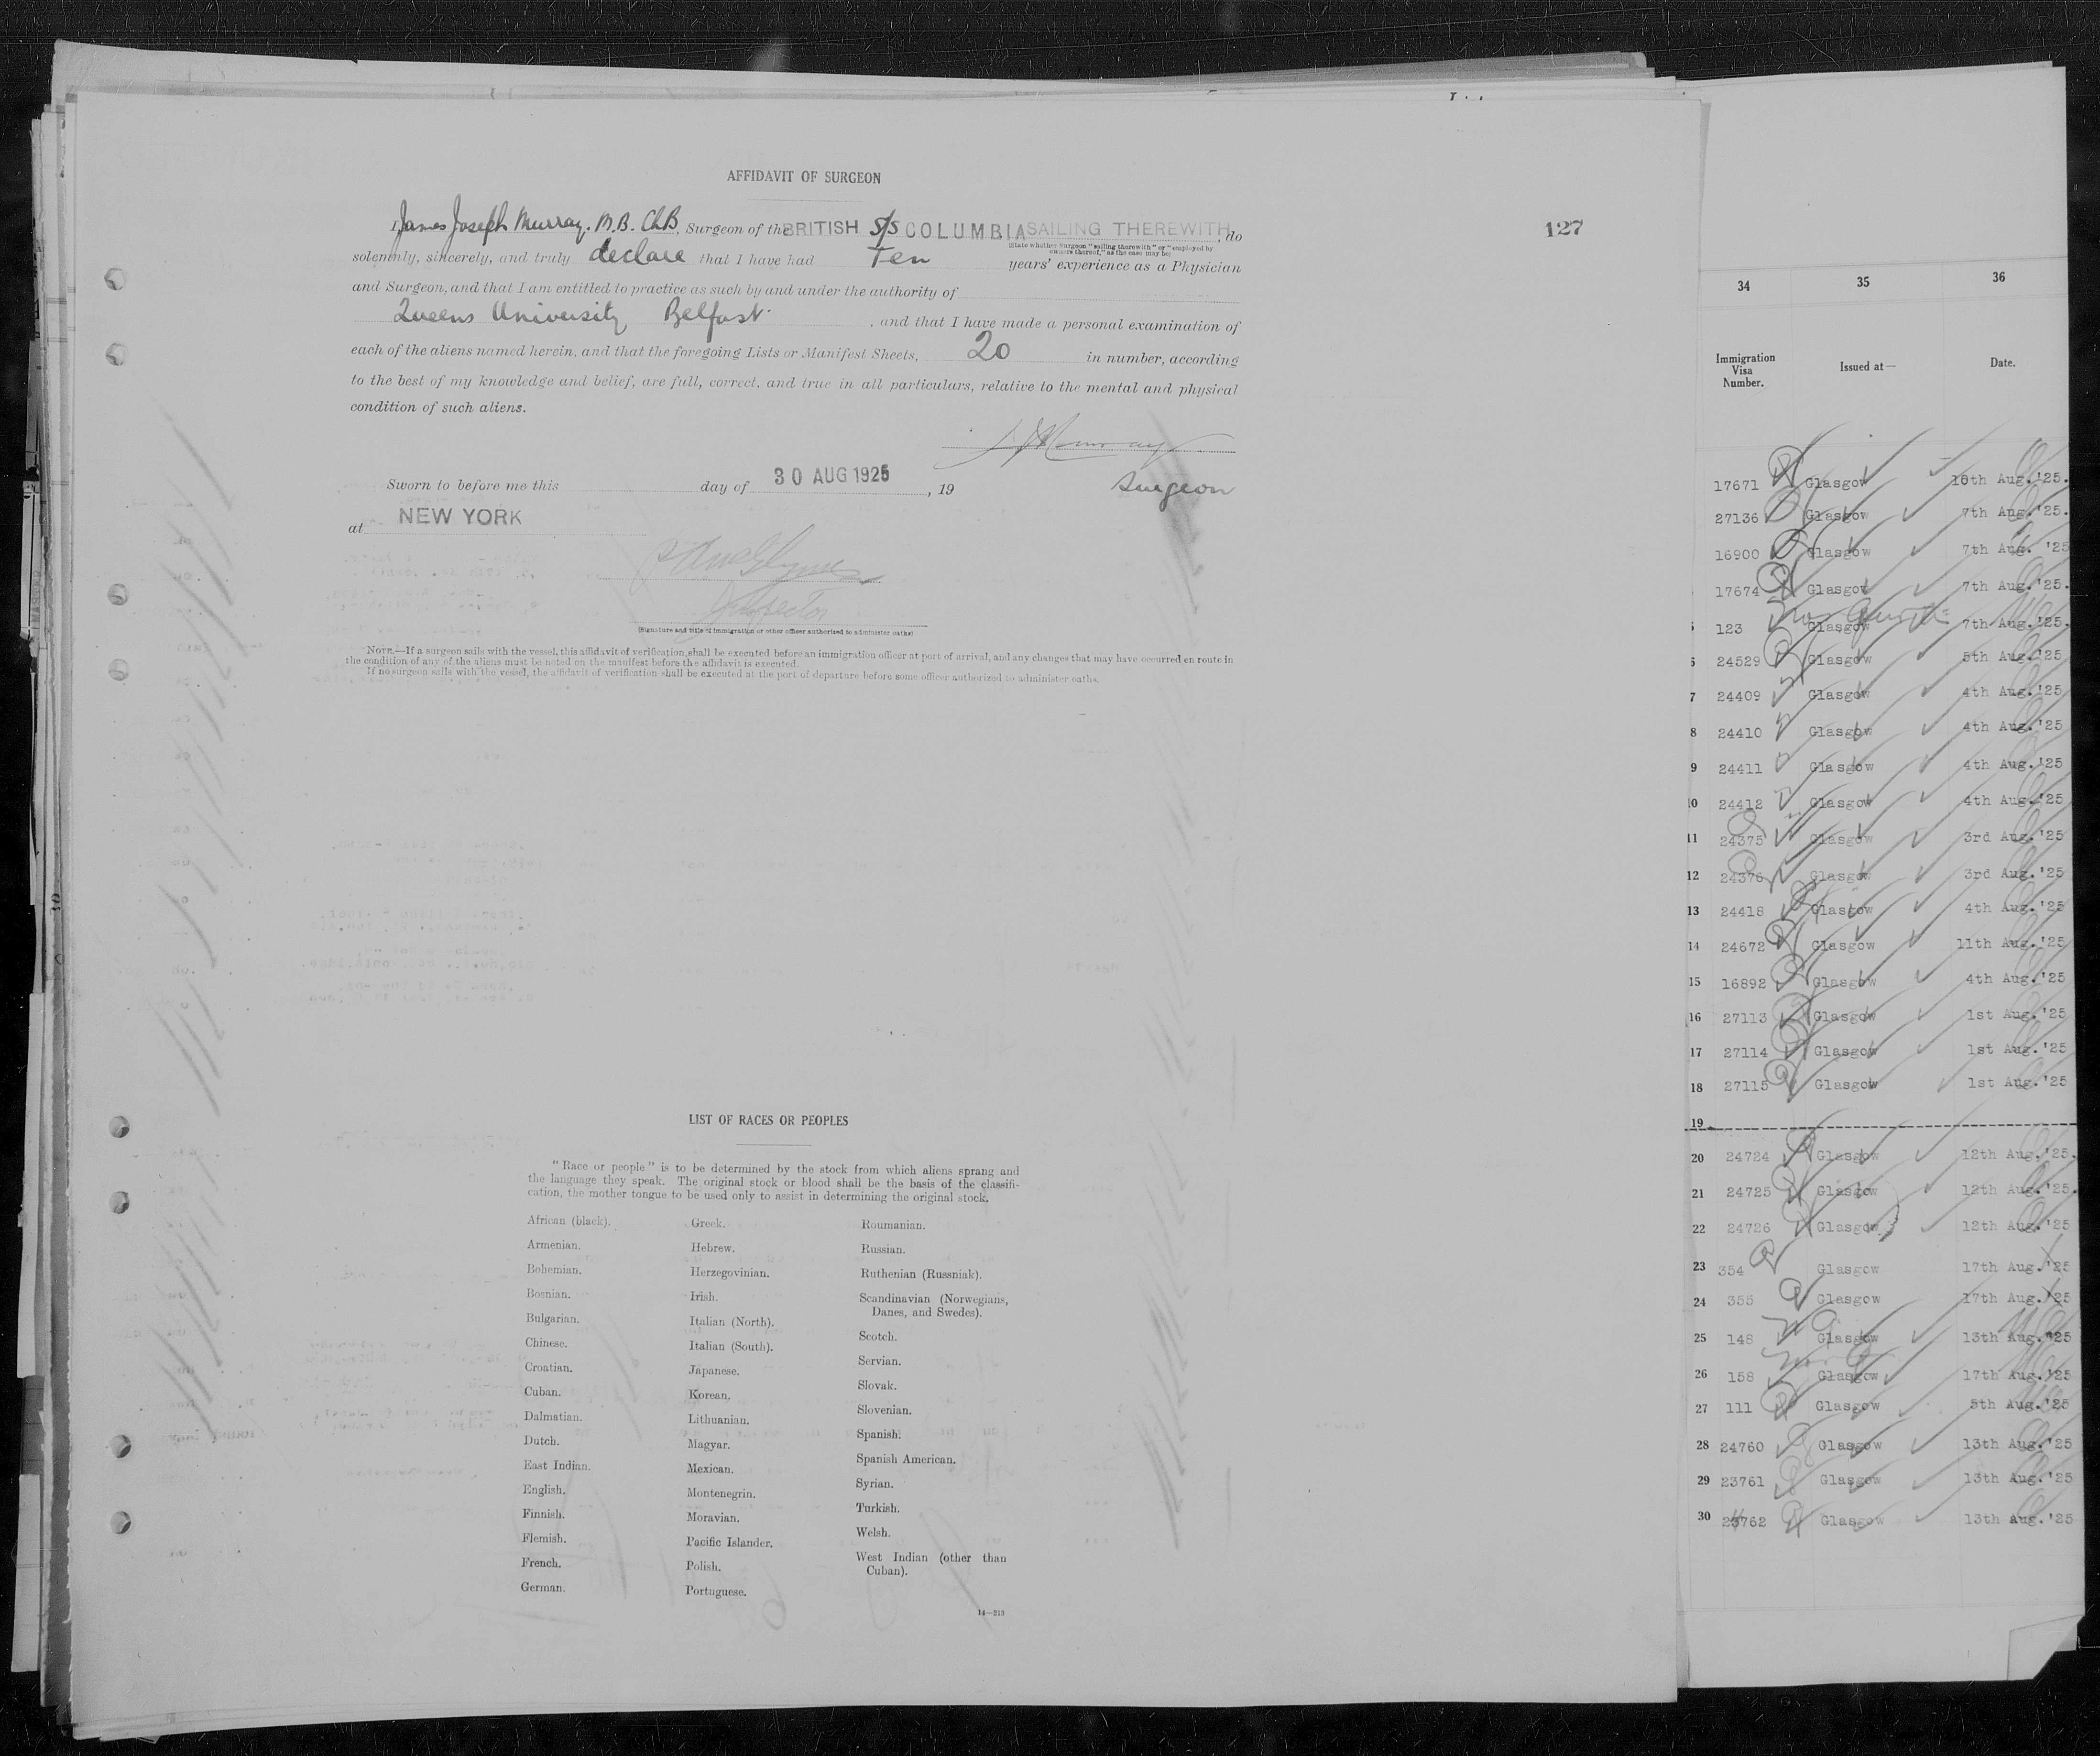 AFFIDAVIT OF SURGEON
I, James Joseph Murray. M.B. Ch.B, Surgeon of the BRITISH S/S COLUMBIA SAILING THEREWITH, do
(State whether Surgeon "sailing therewith" or "employed by
owners thereof," as the case may be)
solemnly, sincerely, and truly declare that I have had Ten years' experience as a Physician
and Surgeon, and that I am entitled to practice as such by and under the authority of
Queens University Belfast, and that I have made a personal examination of
each of the aliens named herein, and that the foregoing Lists or Manifest Sheets, 20 in number, according
to the best of my knowledge and belief, are full, correct, and true in all particulars, relative to the mental and physical
condition of such aliens.
J J Murray
Surgeon
Sworn to before me this day of 30 AUG 1925, 19
at NEW YORK
Inspector
(Signature and title of immigration or other officer authorized to administer oaths)
NOTE.—If a surgeon sails with the vessel, this affidavit of verification shall be executed before an immigration officer at port of arrival, and any changes that may have occurred en route in
the condition of any of the aliens must be noted on the manifest before the affidavit is executed.
If no surgeon sails with the vessel, the affidavit of verification shall be executed at the port of departure before some officer authorized to administer oaths.
LIST OF RACES OR PEOPLES
"Race or people" is to be determined by the stock from which aliens sprang and
the language they speak. The original stock or blood shall be the basis of the classifi-
cation, the mother tongue to be used only to assist in determining the original stock.
African (black).
Armenian.
Bohemian.
Bosnian.
Bulgarian.
Chinese.
Croatian.
Cuban.
Dalmatian.
Dutch.
East Indian.
English.
Finnish.
Flemish.
French.
German.
Greek.
Hebrew.
Herzegovinian.
Irish.
Italian (North).
Italian (South).
Japanese.
Korean.
Lithuanian.
Magyar.
Mexican.
Montenegrin.
Moravian.
Pacific Islander.
Polish.
Portuguese.
Roumanian.
Russian.
Ruthenian (Russniak).
Scandinavian (Norwegians,
Danes, and Swedes).
Scotch.
Servian.
Slovak.
Slovenian.
Spanish.
Spanish American.
Syrian.
Turkish.
Welsh.
West Indian (other than
Cuban).
14—213
127
34 35 36
Immigration
Visa
Number. Issued at— Date.
17671 Glasgow 10th Aug.'25.
27136 Glasgow 7th Aug.'25.
16900 Glasgow 7th Aug. '25
17674 Glasgow 7th Aug.'25.
123 Glasgow 7th Aug.'25.
6 24529 Glasgow 5th Aug.'25
7 24409 Glasgow 4th Aug.'25
8 24410 Glasgow 4th Aug.'25
9 24411 Glasgow 4th Aug.'25
10 24412 Glasgow 4th Aug.'25
11 24375 Glasgow 3rd Aug.'25
12 24376 Glasgow 3rd Aug.'25
13 24418 Glasgow 4th Aug.'25
14 24672 Glasgow 11th Aug.'25
15 16892 Glasgow 4th Aug.'25
16 27113 Glasgow 1st Aug.'25
17 27114 Glasgow 1st Aug.'25
18 27115 Glasgow 1st Aug.'25
19
20 24724 Glasgow 12th Aug.'25.
21 24725 Glasgow 12th Aug.'25.
22 24726 Glasgow 12th Aug.'25
23 354 Glasgow 17th Aug.'25
24 355 Glasgow 17th Aug.'25
25 148 Glasgow 13th Aug.'25
26 158 Glasgow 17th Aug.'25
27 111 Glasgow 5th Aug.'25
28 24760 Glasgow 13th Aug.'25
29 23761 Glasgow 13th Aug.'25
30 23762 Glasgow 13th Aug.'25